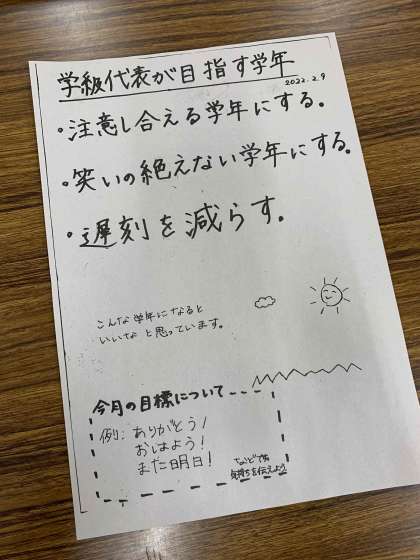 学級代表が目指す学年
2022.2.9
・注意し合える学年にする。
・笑いの絶えない学年にする。
・遅刻を減らす。
こんな学年になると
いいなと思っています。
今月の目標について
例:ありがとう!
おはよう!
また明日!
などで
気持ちを伝えよう